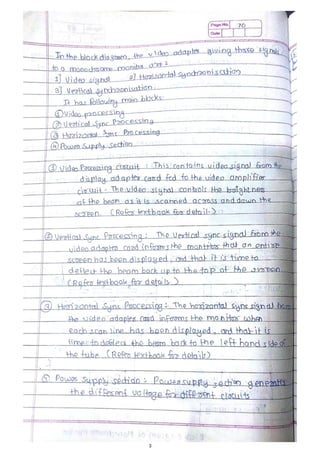 Page No. 20
Date
In the block diagram, the video adapter giving three signals
to a monochrome monitor are:
1) Video signal 2) Horizontal synchronisation
3) Vertical synchronisation.
It has following main blocks:
① Video processing
② Vertical Sync Processing
③ Horizontal Sync Processing
④ Power Supply section
① Video Processing circuit : This contains video signal from the
display adapter card fed to the video amplifier
circuit. The video signal controls the brightness
of the beam as it is scanned across and down the
screen. (Refer textbook for detail.)
② Vertical Sync Processing : The Vertical sync signal from the
video adapter card informs the monitor that an entire
screen has been displayed, and that it is time to
deflect the beam back up to the top of the screen.
(Refer textbook for details)
③ Horizontal Sync Processing : The horizontal sync signal from
the video adapter card informs the monitor when
each scan line has been displayed, and that it is
time to deflect the beam back to the left hand side of
the tube (Refer textbook for details)
Power Supply section : Power supply section generates
the different voltage for different circuits